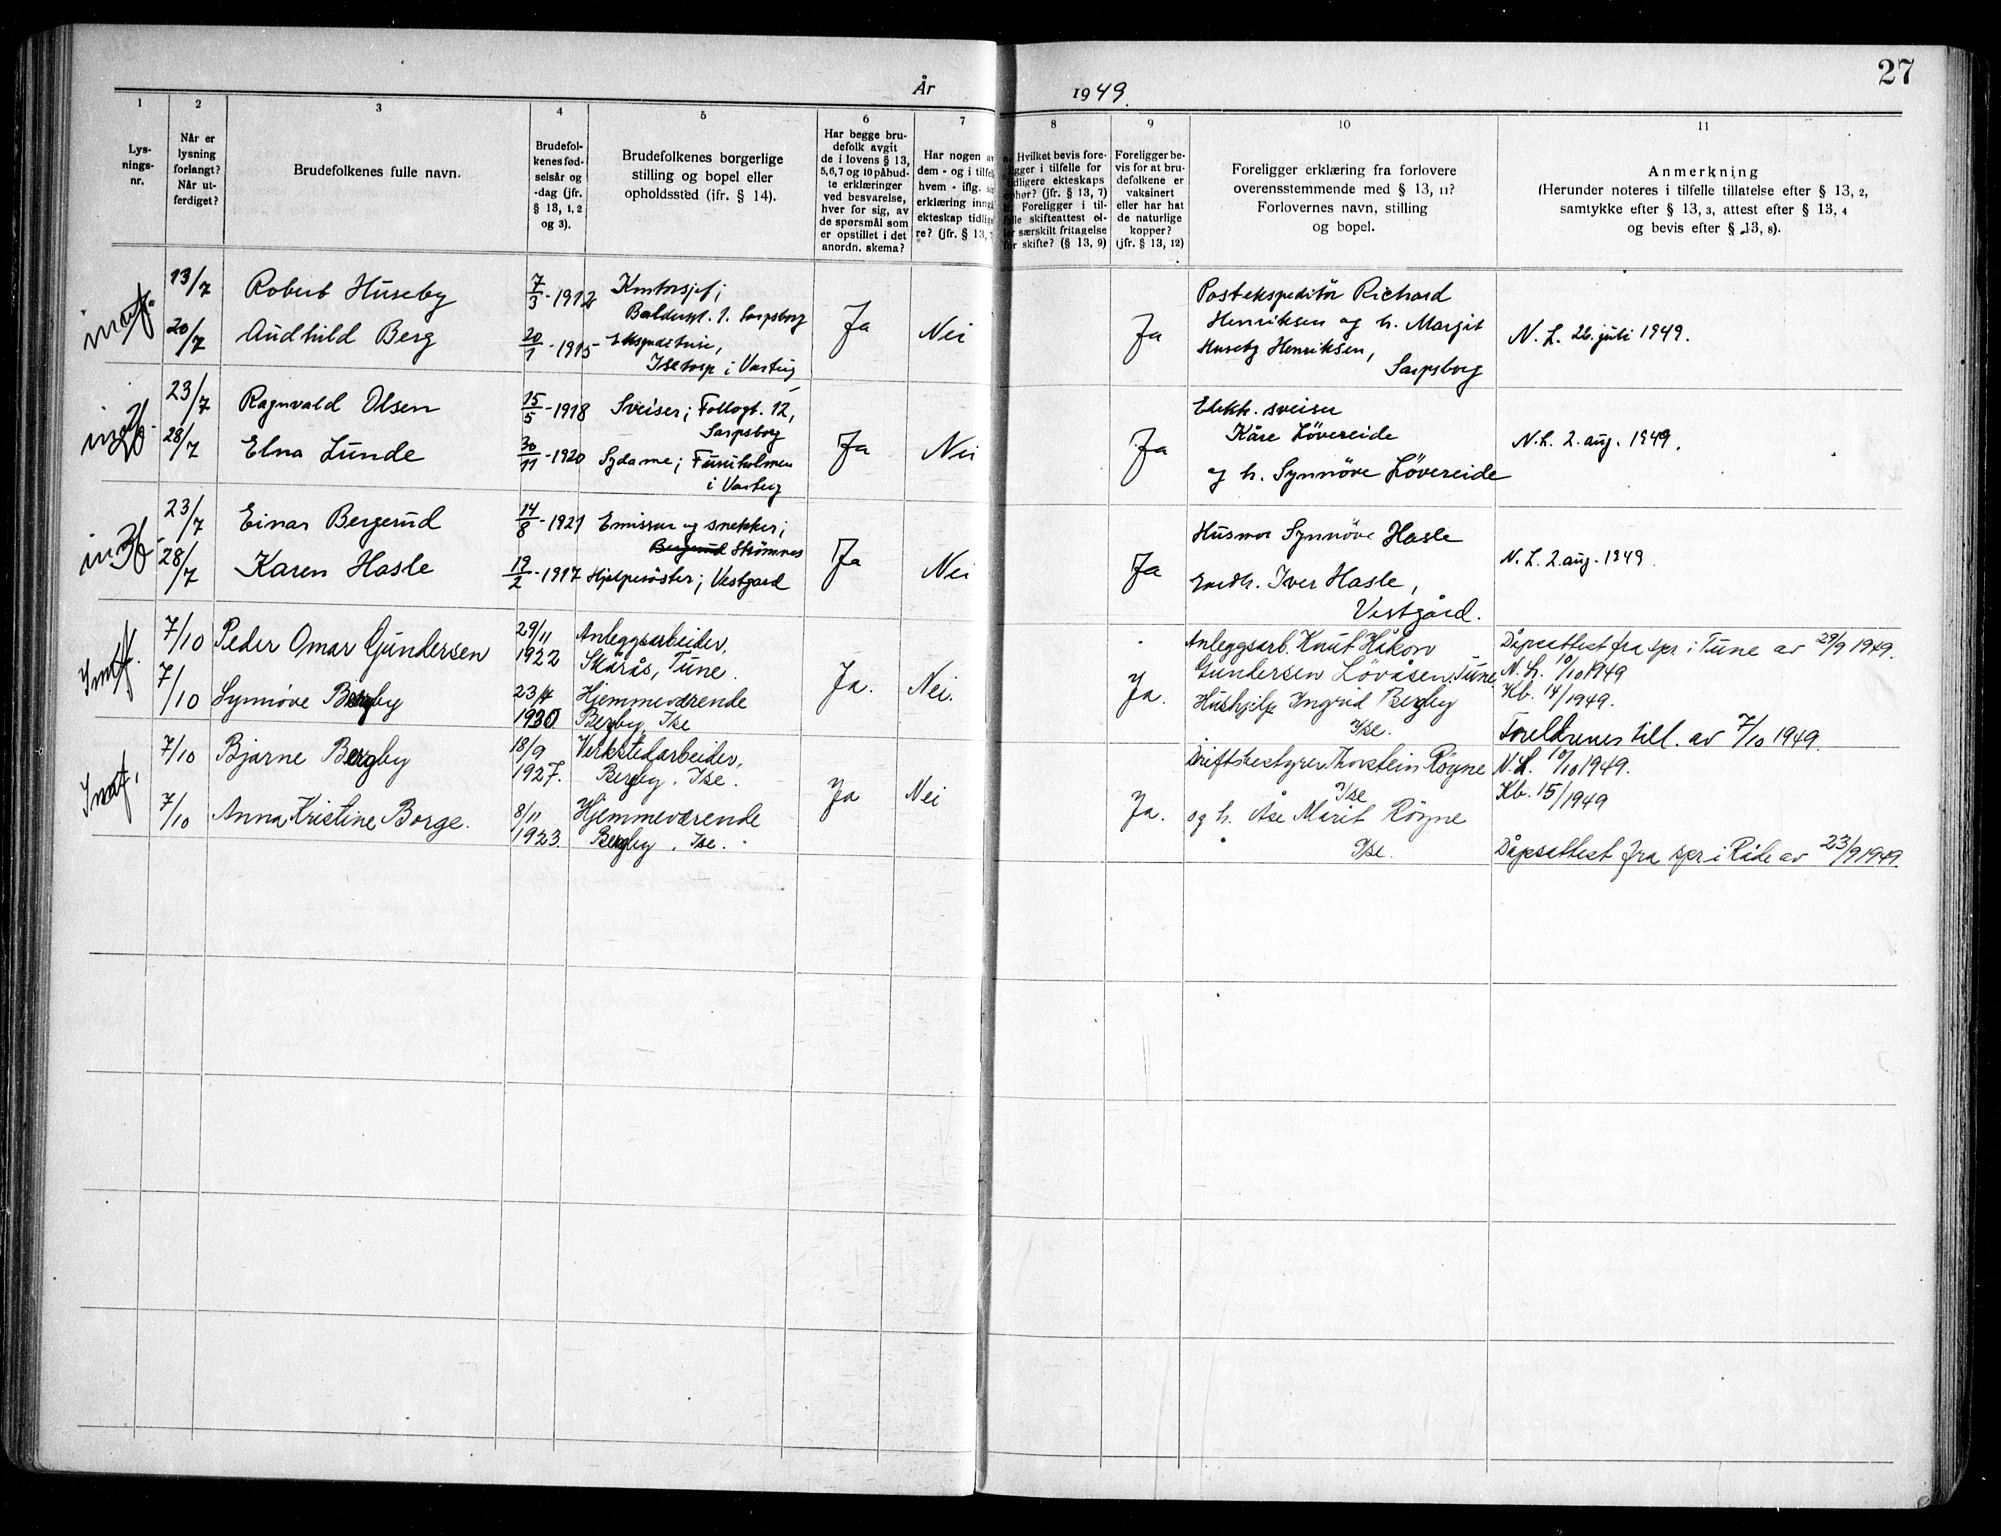 27
År 1949.
1 2 3 4 5 6 7 8 9 10 11
Lys-
nings-
nr.
Når er
lysning
forlangt?
Når ut-
ferdiget?
Brudefolkenes fulle navn.
Brudefol-
kenes fød-
selsår og
-dag (jfr.
§ 13, 1, 2
og 3).
Brudefolkenes borgerlige
stilling og bopel eller
opholdssted (jfr. § 14).
Har begge bru-
defolk avgit
de i lovens § 13,
5,6,7 og 10 påbud-
te erklæringer
ved besvarelse,
hver for sig, av
de spørsmål som
er opstillet i det
anordn. skema?
Har nogen av
dem - og i tilfel
hvem - iflg.
erklæring inng
ekteskap tidlige
re? (jfr. § 13,
Hvilket bevis fore-
ligger i tilfelle for
tidligere ekteskaps
ophør? (jfr. § 13, 7)
Foreligger i til-
felle skifteattest el-
ler særskilt fritagelse
for skifte? (§ 13, 9)
Foreligger be-
vis for at bru-
defolkene er
vaksinert
eller har hat
de naturlige
kopper?
(jfr. § 13, 12)
Foreligger erklæring fra forlovere
overensstemmende med § 13, 11?
Forlovernes navn, stilling
og bopel.
Anmerkning
(Herunder noteres i tilfelle tillatelse efter § 13, 2,
samtykke efter § 13, 3, attest efter § 13, 4
og bevis efter § 13, 8).
13/7 Robert Huseby 7/3-1912 Kontorsjef;
Baldersgt. 1. Sarpsborg
20/7 Audhild Berg 20/1-1915 Ekspeditrise,
Isetorp i Varteig
Ja Nei Ja
Postekspeditør Richard
Henriksen og h. Margit
Huseby Henriksen,
Sarpsborg
N. L. 26. juli 1949.
23/7 Ragnvald Olsen 15/5-1918 Sveiser; Follogt. 12,
Sarpsborg
28/7 Elna Lunde 30/11-1920 Sydame; Furuholmen
i Varteig
Ja Nei Ja
Elekk. sveiser
Kåre Lövereide
og h. Synnöve Lövereide
N. L. 2. aug. 1949.
23/7 Einar Bergerud 14/8-1921 Emissær og snekker;
Bergerud Strømnes
28/7 Karen Hasle 19/2-1917 Hjelpesöster; Vestgard
Ja Nei Ja
Husmor Synnöve Hasle
Gardb. Iver Hasle,
Vestgård.
N. L. 2. aug. 1949
7/10 Peder Omar Gundersen 29/11 1922 Anleggsarbeider,
Skårås, Tune.
7/10 Synnöve Bergby 23/4 1930 Hjemmeværende
Bergby, Ise
Ja. Nei. Ja.
Anleggsarb. Knut Håkon
Gundersen Lövåsen, Tune.
Hushjelp Ingrid Bergby
Ise.
Dåpsattest fra spr. i Tune av 29/9 1949.
N. L. 10/10 1949
Kb. 14/1949.
Foreldrenes till. av 7/10 1949.
7/10 Bjarne Bergby 18/9 1927. Verkstedarbeider,
Bergby, Ise.
7/10 Anna Kristine Borge. 8/11 1923. Hjemmeværende
Bergby, Ise.
Ja Nei Ja.
Driftsbestyrer Thorstein Röyne
Ise
og h. Åse Marit Röyne
Ise.
N. L. 10/10 1949.
Kb. 15/1949
Dåpsattest fra spr i Råde av 23/9 1949.